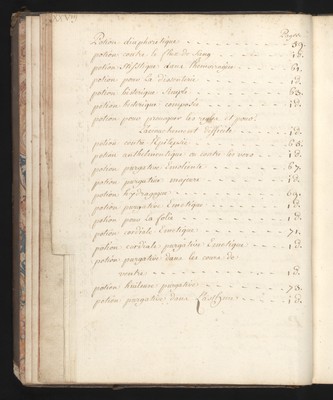 Pages.
Potion diaphorétique - - - - 59.
potion contre le flux de sang - - - - id.
potion stiptique dans l'hemoragie - - - - 61.
potion pour la dissenterie - - - - id.
potion histerique simple - - - - 63.
potion histerique composée - - - - id.
potion pour provoquer les et pour
l'accouchement difficile - - - - id.
potion contre l'épilepsie - - - - 65.
potion anthelmentique ou contre les vers - id.
potion purgative - - - - 67.
potion purgative majeure - - - - id.
potion hydragogue - - - - 69.
potion purgative Emetique - - - - id.
potion pour la folie - - - - id.
potion cordiale Emetique - - - - 71.
potion cordiale purgative Emetique - - id.
potion purgative dans les cours de
ventre - - - - id.
potion huileuse purgative - - - - 73.
potion purgative dans - - - - id.